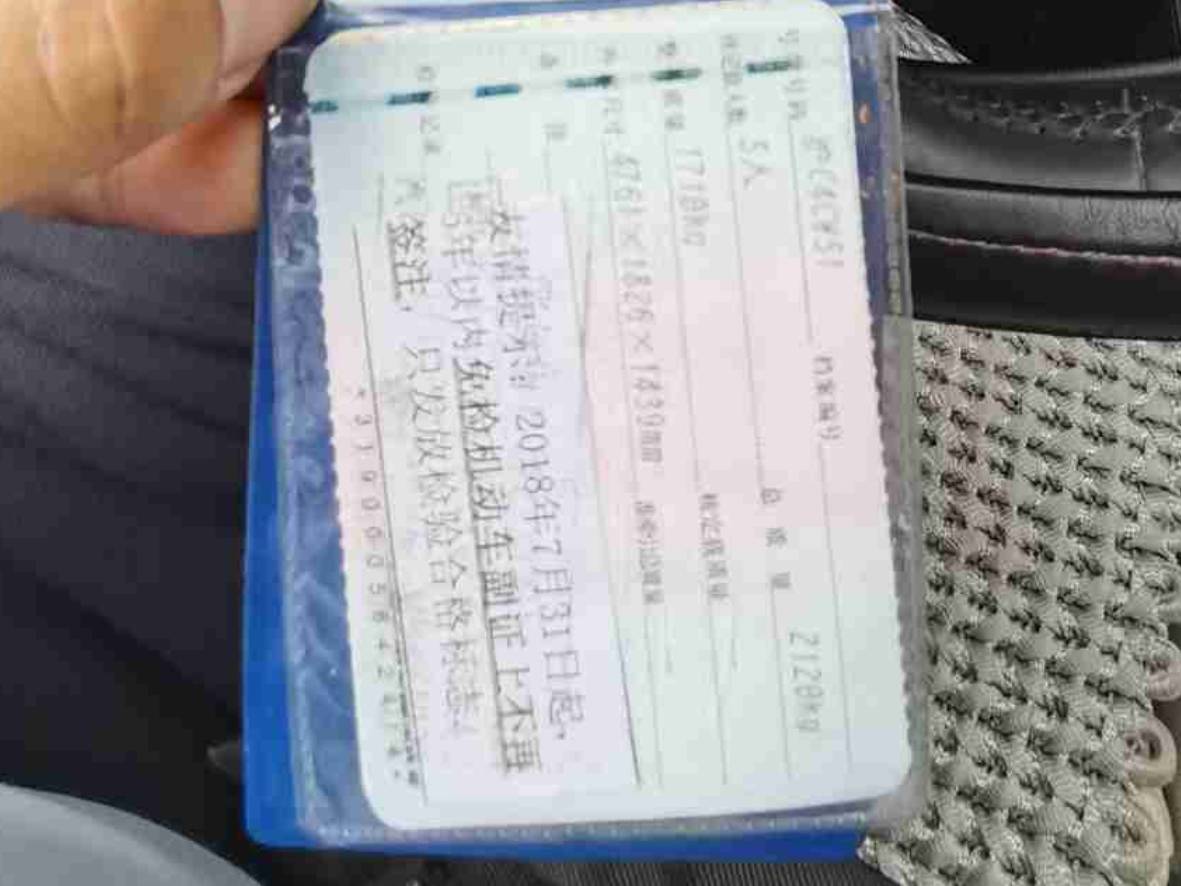 号牌号码 沪C4CW51 档案编号
核定载人数 5人 总质量 2120kg
整备质量 1710kg 核定载质量
外廓尺寸 4761×1826×1439mm 准牵引总质量
备注
友情提示: 2018年7月31日起,
6年以内免检机动车副证上不再
签注, 只发放检验合格标志。
检验记录